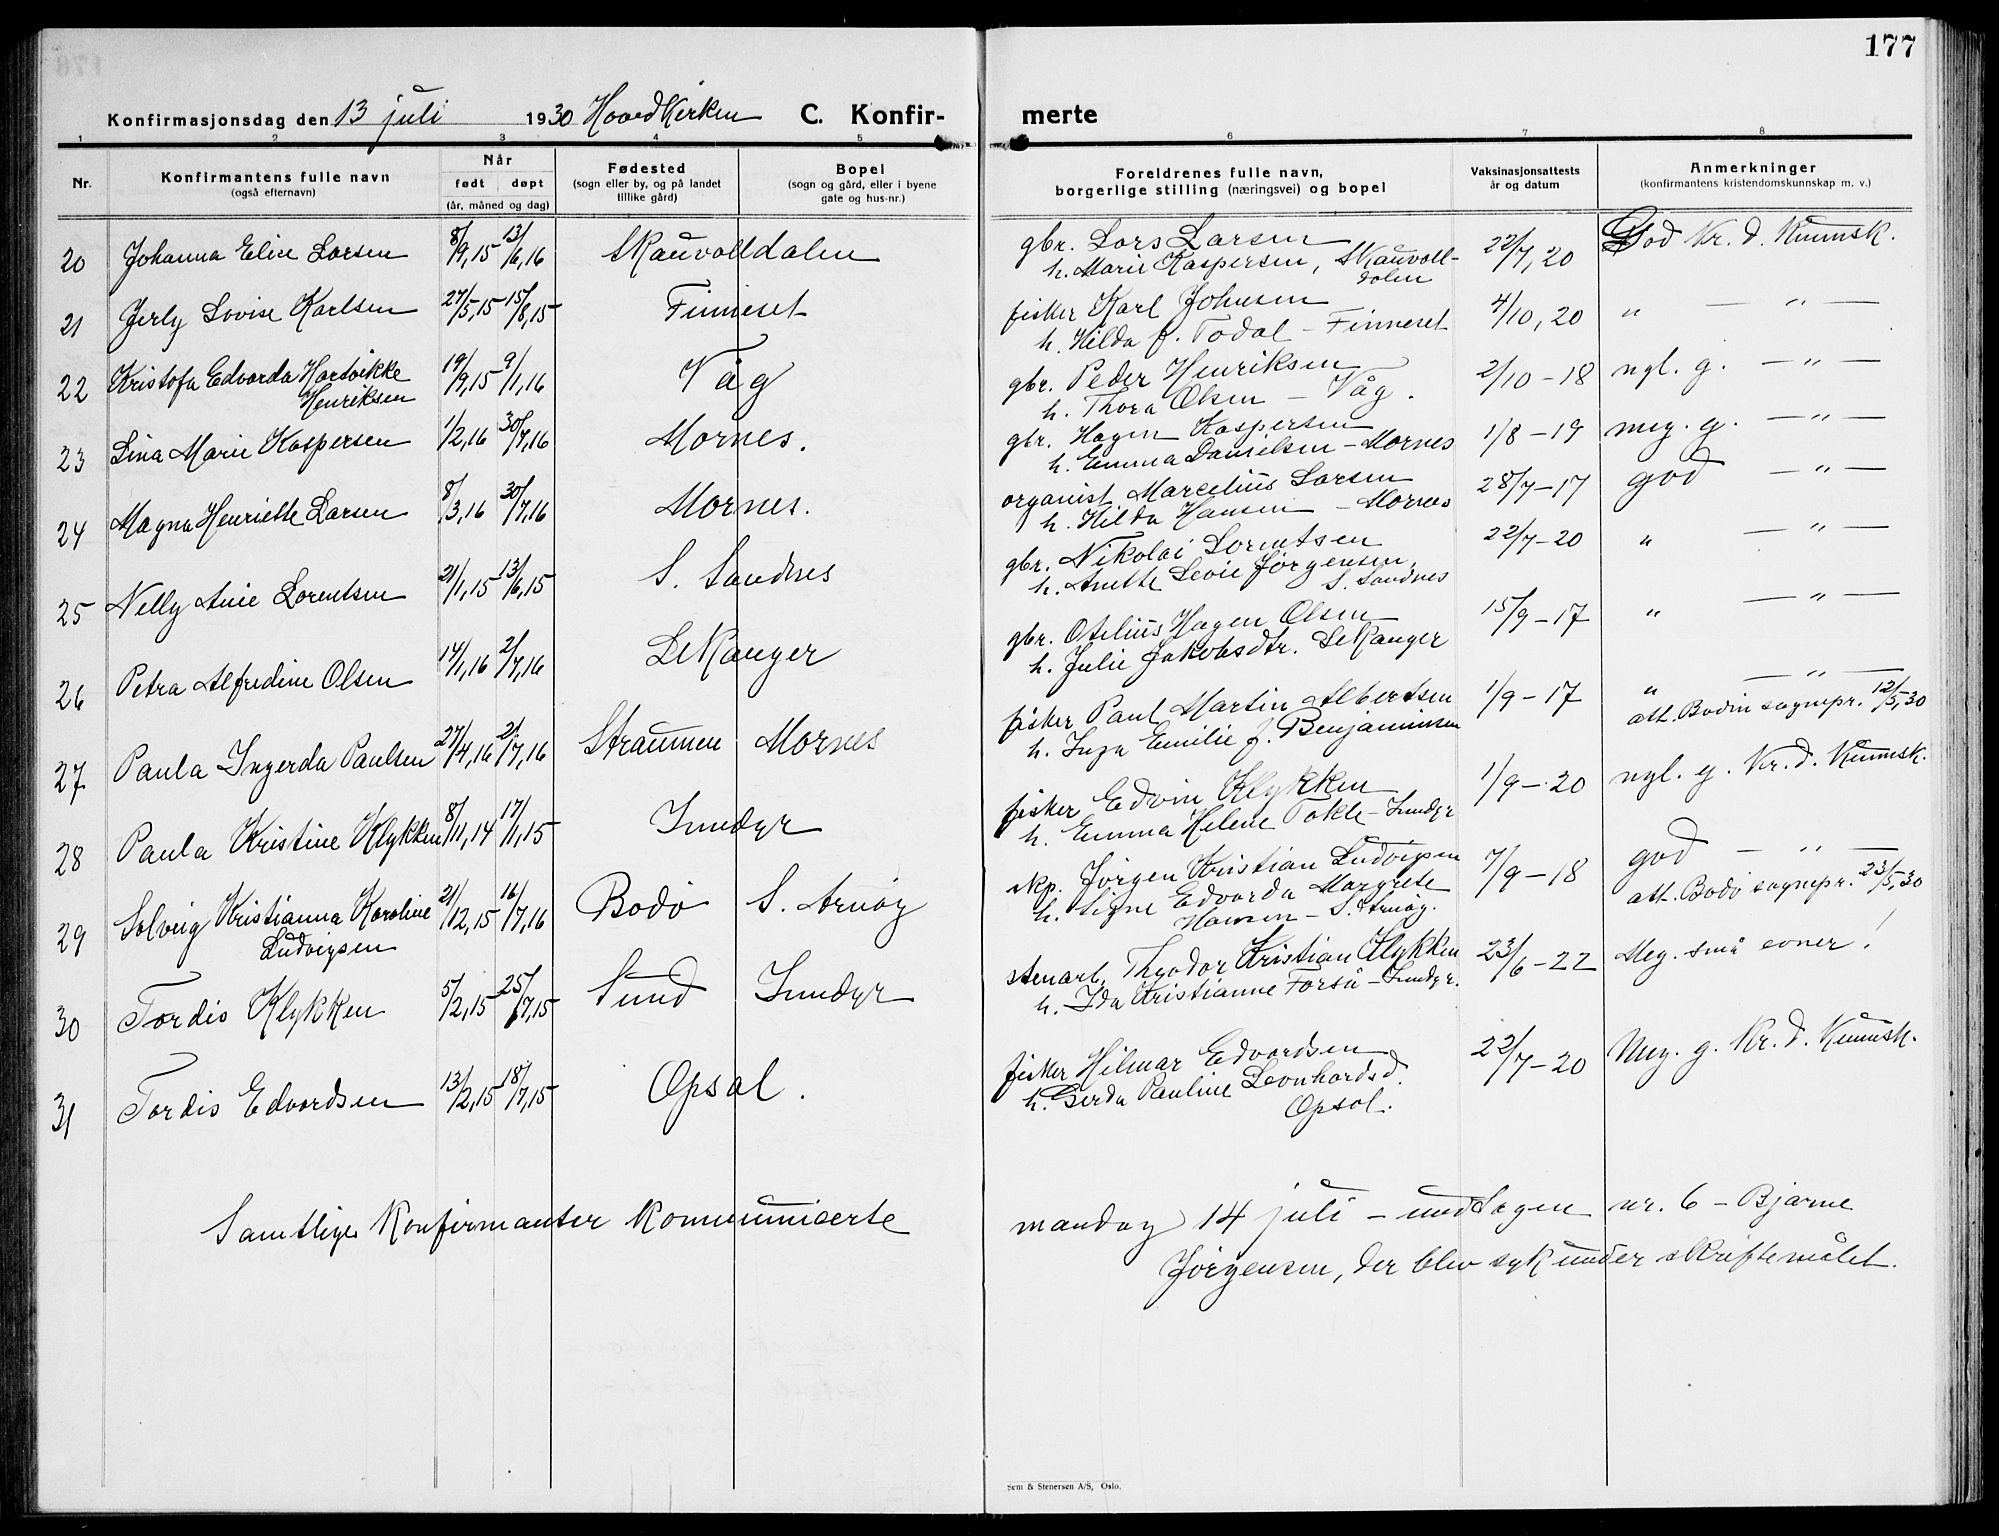 177
Konfirmasjonsdag den 13 juli 1930 Hovedkirken C. Konfirmerte
1 2 3 4 5 6 7 8
Nr. Konfirmantens fulle navn (også efternavn) Når født døpt (år, måned og dag) Fødested (sogn eller by, og på landet tillike gård) Bopel (sogn og gård, eller i byene gate og hus-nr.) Foreldrenes fulle navn, borgerlige stilling (næringsvei) og bopel Vaksinasjonsattests år og datum Anmerkninger (konfirmantens kristendomskunnskap m. v.)
20 Johanna Elise Larsen 8/9,15 13/6,16 Skauvolldalen gbr. Lars Larsen 22/7,20 God Kr. d. Kunnsk.
h. Marie Kaspersen, Skauvoll-
dalen
21 Jerly Lovise Karlsen 27/5,15 15/8,15 Finneset fisker Karl Johnsen 4/10,20 " — " —
h. Hilda f. Todal – Finneset
22 Kristofa Edvarda Hartvikke 19/9,15 9/1,16 Våg gbr. Peder Henriksen 2/10–18 ngl. g. — " —
Henriksen h. Thora Olsen – Våg.
23 Lina Marie Kaspersen 1/2,16 30/7,16 Mornes. gbr. Hagen Kaspersen 1/8–19 meg. g. — " —
h. Emma Danielsen – Mornes
24 Magna Henriette Larsen 8/3,16 30/7,16 Mornes. organist Marcelius Larsen 28/7–17 god — " —
h. Hilda Hansen – Mornes
25 Nelly Anie Lorentsen 21/1,15 13/6,15 S. Sandnes gbr. Nikolai Lorentsen 22/7–20 " — " —
h. Anette Levie Jørgensen,
S. Sandnes
26 Petra Alfredine Olsen 14/1,16 2/7,16 Lekanger gbr. Otelius Hagen Olsen 15/9–17 " — " —
h. Julie Jakobsdtr. Lekanger
27 Paula Ingerda Paulsen 27/4,16 2/7,16 Straumen Mornes fisker Paul Martin Albertsen 1/9–17 " — " —
h. Inga Emilie f. Benjaminsen att. Bodin sognepr. 12/5,30
28 Paula Kristine Klykken 8/11,14 17/1,15 Inndyr fisker Edvin Klykken 1/9–20 ngl. g. Kr. d. Kunnsk.
h. Emma Helene Tokle – Inndyr
29 Solveig Kristianna Karoline 21/12,15 16/7,16 Bodø S. Arnøy skp. Jørgen Kristian Ludvigsen 7/9–18 god — " —
Ludvigsen h. Signe Edvarda Margrete att. Bodø sognepr. 23/5,30
Hansen – S. Arnøy.
30 Tordis Klykken 5/2,15 25/7,15 Sund Inndyr stenarb. Theodor Kristian Klykken 23/6–22 Meg. små evner!
h. Ida Kristianne Forså – Inndyr.
31 Tordis Edvardsen 13/2,15 18/7,15 Opsal. fisker Hilmar Edvardsen 22/7–20 Meg. g. Kr. d. Kunnsk.
h. Gerda Pauline Leonhardsd.
Opsal.
Samtlige Konfirmanter kommunicerte mandag 14 juli – undtagen nr. 6 – Bjarne
Jørgensen, der blev syk under skriftemålet.
Sem & Stenersen A/S, Oslo.